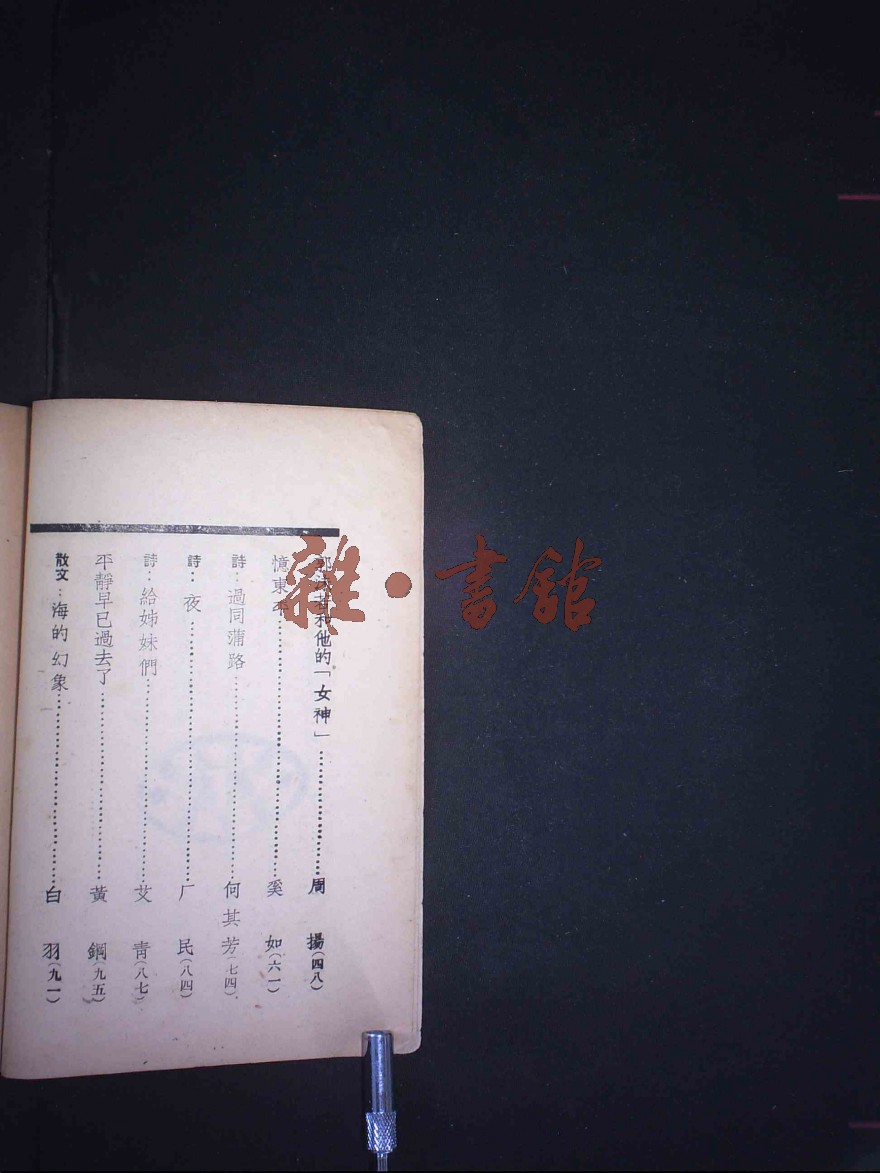 他的「女神」……………………周 揚(四八)
憶東平……………………………奚 如(六一)
詩：過同蒲路……………………何其芳(七四)
詩：夜……………………………厂 民(八四)
詩：給姊妹們……………………艾 青(八七)
平靜早已過去了…………………黃 鋼(九五)
散文：海的幻象…………………白 羽(九一)
雜·書館